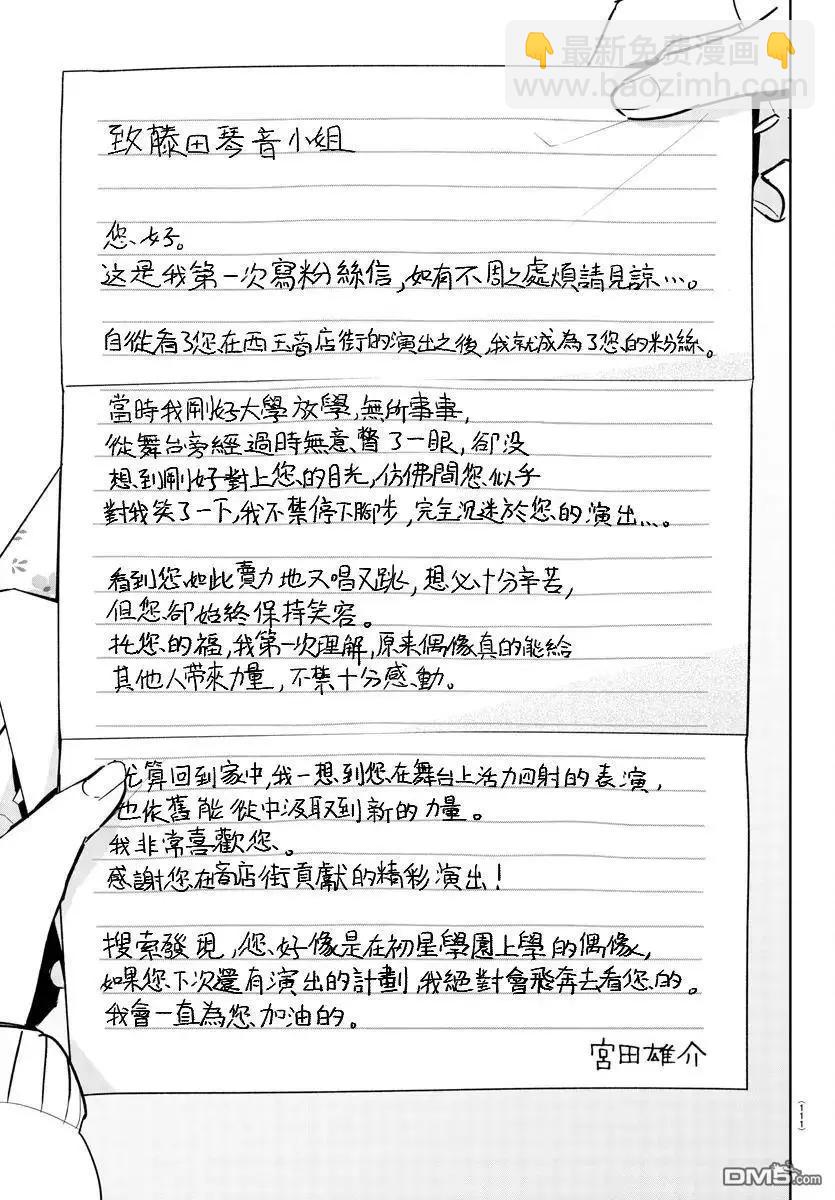 👇最新免费漫画👇
www.baozimh.com
致藤田琴音小姐
您好。
这是我第一次寫粉絲信,如有不周之處煩請見諒…。
自從看了您在西玉商店街的演出之後,我就成為了您的粉絲。
當時我剛好大學放學,無所事事,
從舞台旁經過時無意瞥了一眼,卻没
想到剛好對上您的目光,仿佛間您似乎
對我笑了一下,我不禁停下腳步,完全沉迷於您的演出…。
看到您如此賣力地又唱又跳,想必十分辛苦,
但您卻始終保持笑容。
托您的福,我第一次理解,原来偶像真的能給
其他人带來力量,不禁十分感動。
就算回到家中,我一想到您在舞台上活力四射的表演,
也依舊能從中汲取到新的力量。
我非常喜歡您。
感謝您在商店街貢獻的精彩演出!
搜索發現,您好像是在初星學園上學的偶像,
如果您下次還有演出的計劃,我絕對會飛奔去看您的。
我會一直為您加油的。
宮田雄介
(111)
DM5.com